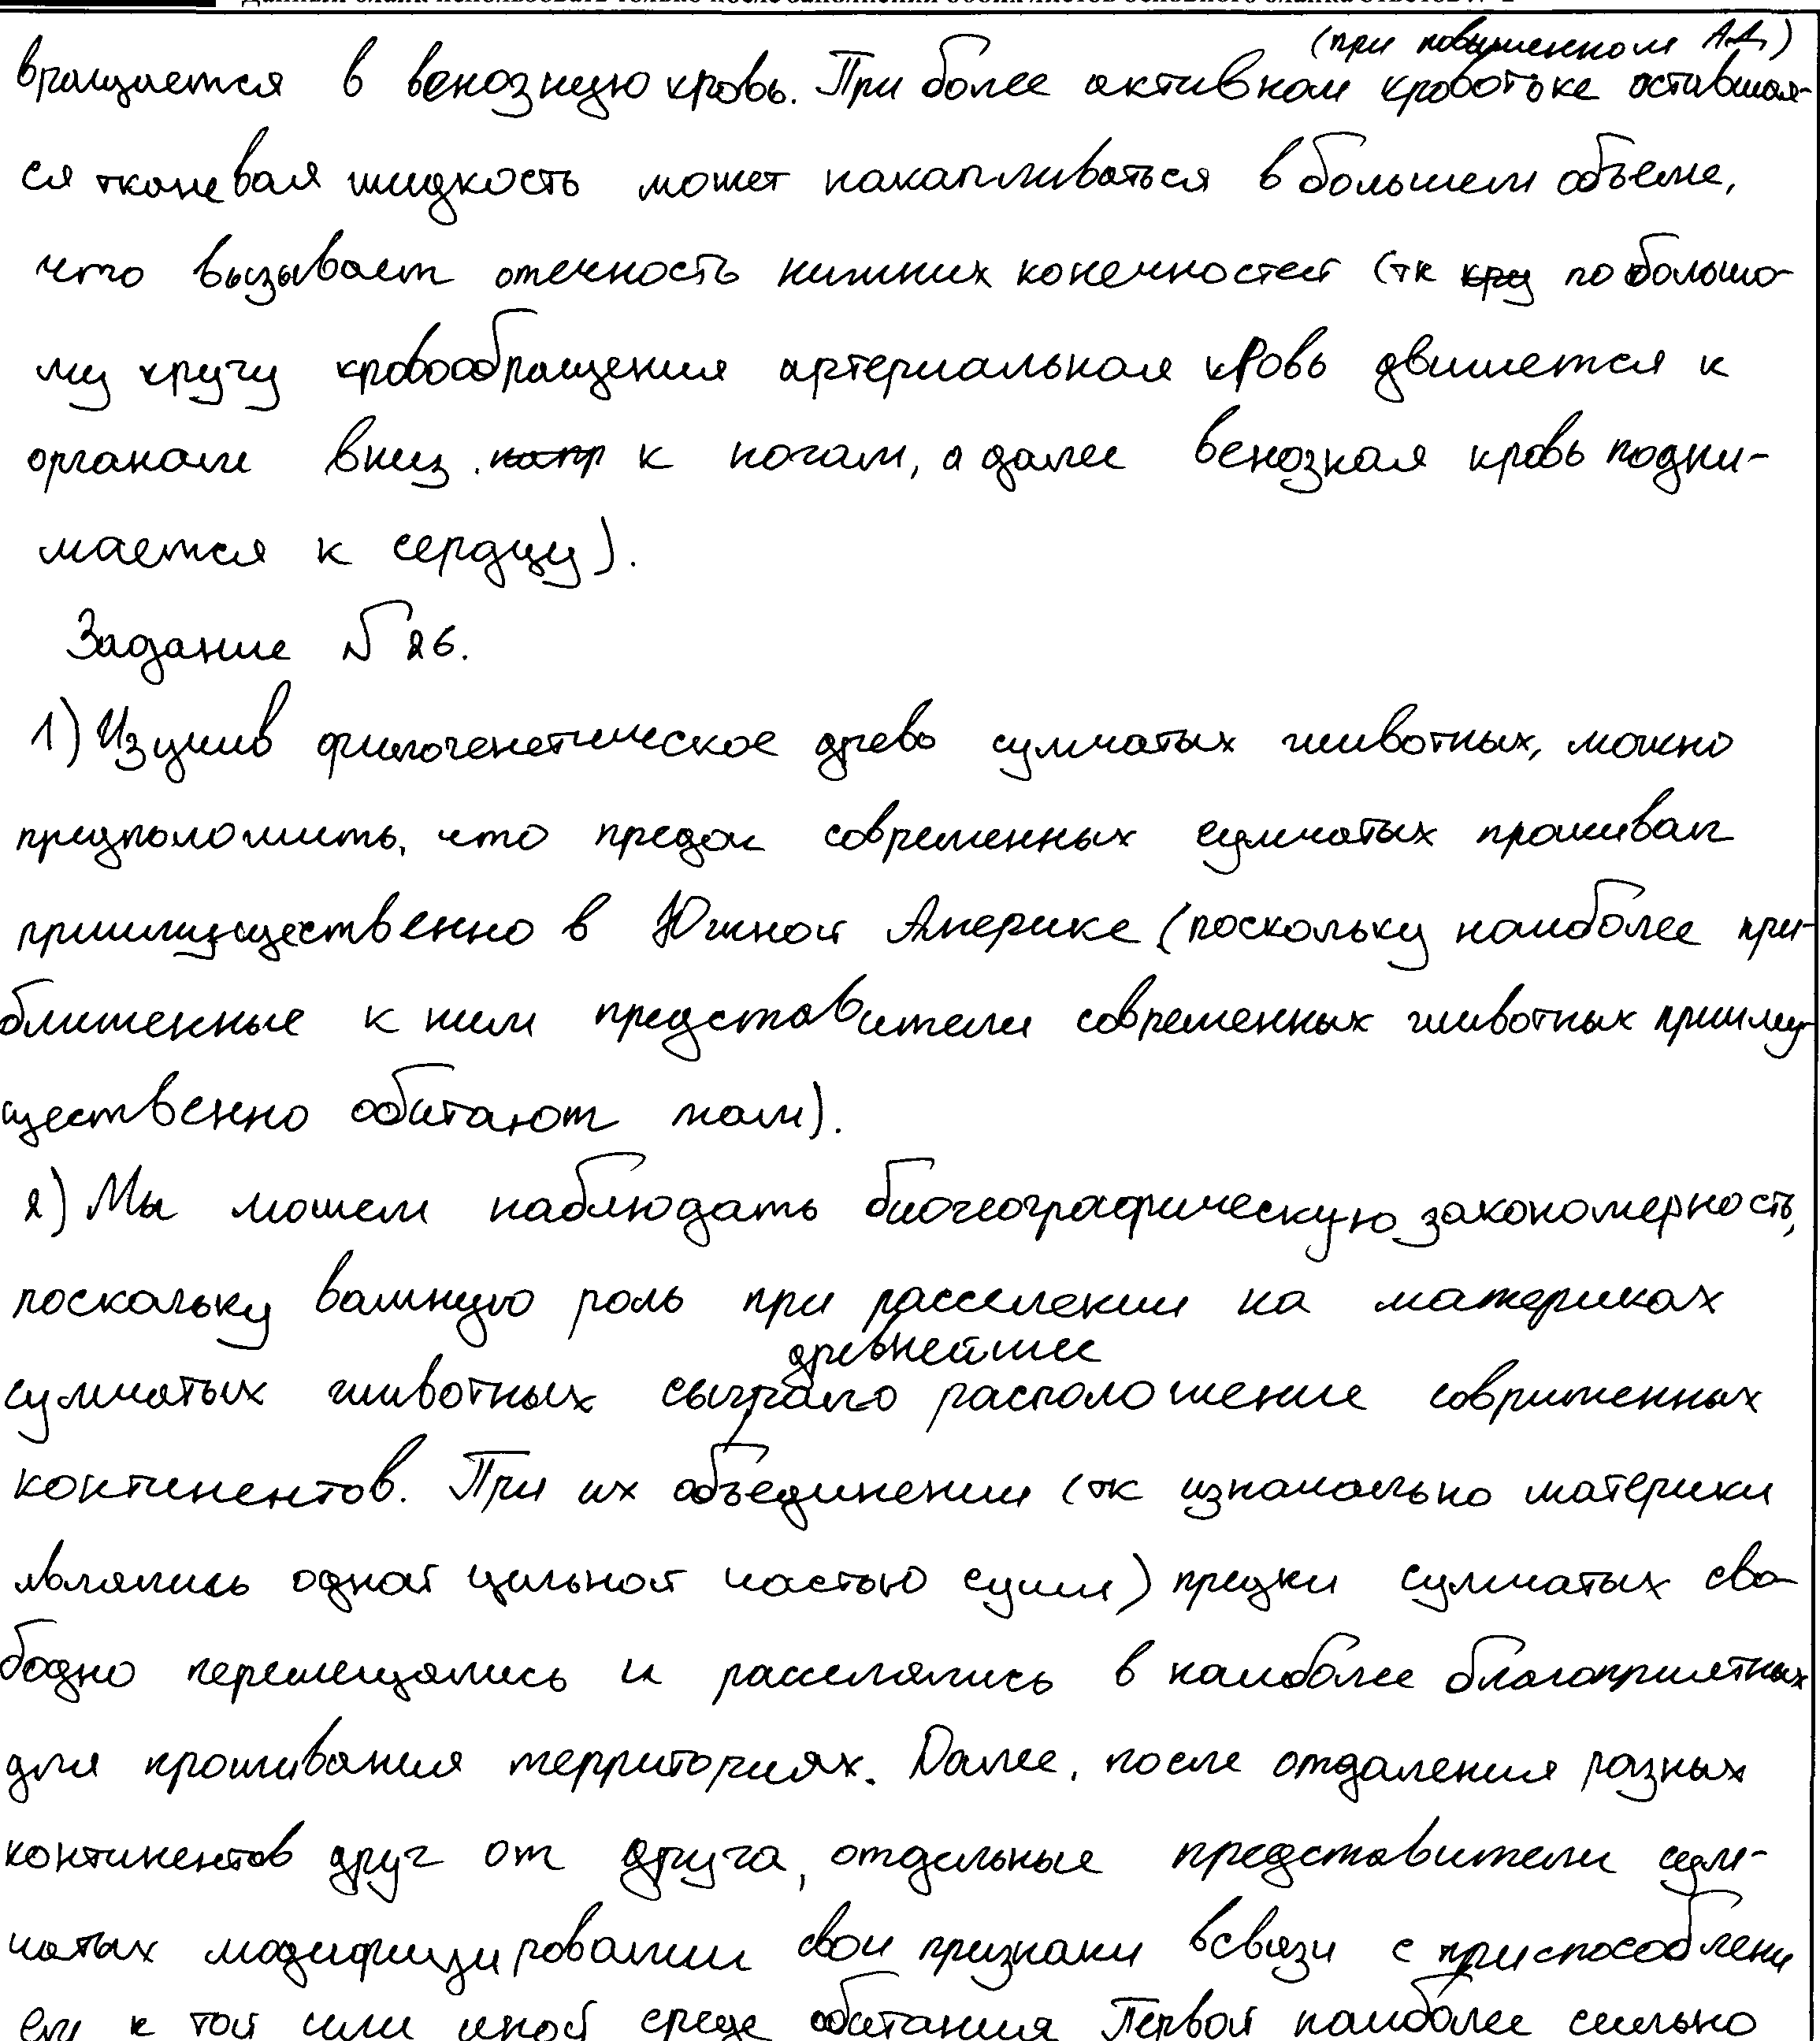 (при повышенном АД)
вращается в венозную кровь. При более активном кровотоке оставшая-
ся тканевая жидкость может накапливаться в большем объеме,
что вызывает отечность нижних конечностей (тк кру по большо-
му кругу кровообращения артериальная кровь движется к
органам вниз напр к ногам, а далее венозная кровь подни-
мается к сердцу).
Задание №26.
1) Изучив филогенетическое древо сумчатых животных, можно
предположить, что предок современных сумчатых проживал
приимущественно в Южной Америке (поскольку наиболее при-
ближенные к ним представители современных животных прииму-
щественно обитают там).
2) Мы можем наблюдать биогеографическую закономерность,
поскольку важную роль при расселении на материках
древнейшее
сумчатых животных сыграло расположение современных
континентов. При их объединении (тк изначально материки
являлись одной цельной частью суши) предки сумчатых сво-
бодно перемещались и расселялись в наиболее благоприятных
для проживания территориях. Далее, после отдаления разных
континентов друг от друга, отдельные представители сум-
чатых модифицировали свои признаки всвязи с приспособлени
ем к той или иной среде обитания Первой наиболее сильно